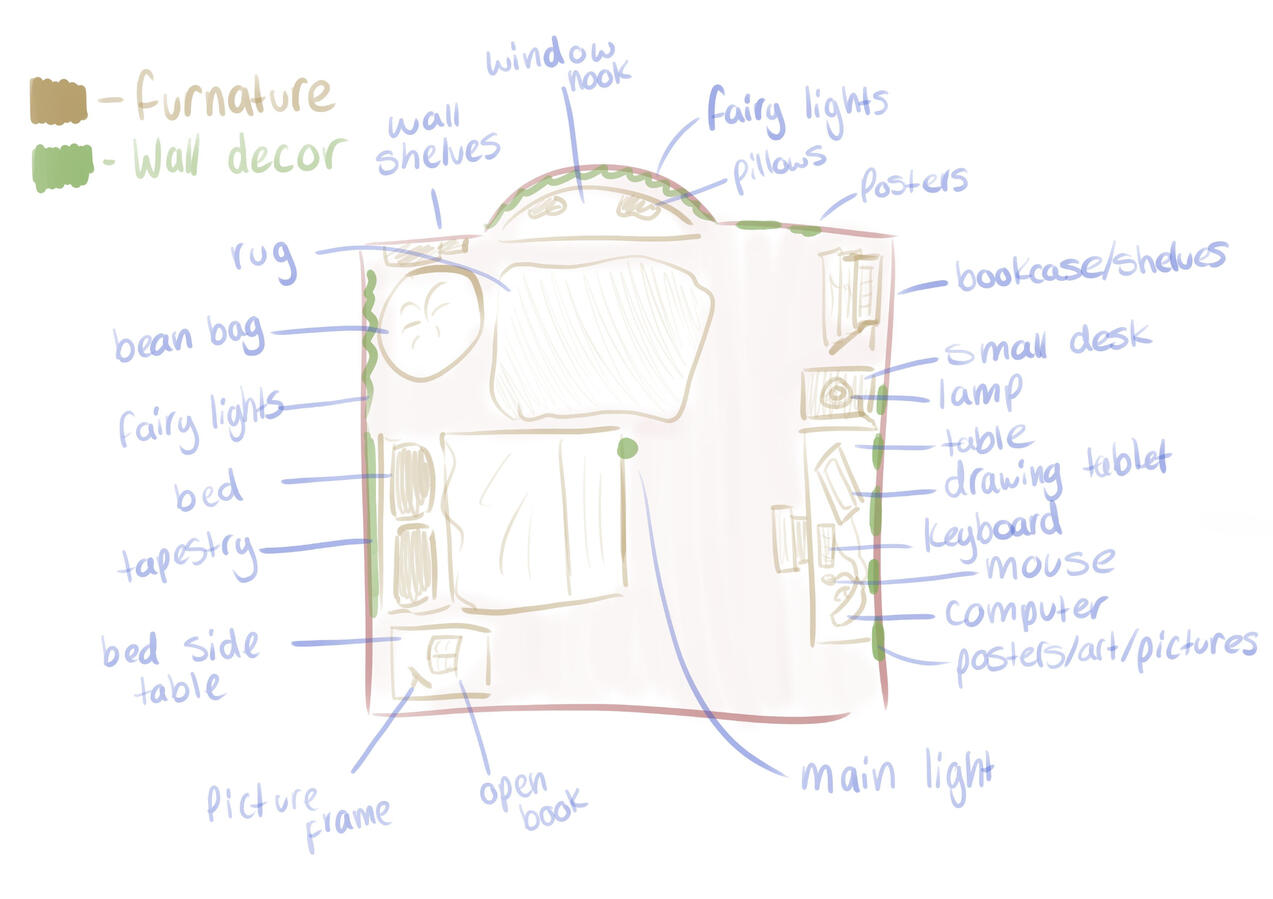 - furnature
- Wall decor
window
nook
wall
shelves
fairy lights
pillows
Posters
rug
bookcase/shelves
bean bag
small desk
lamp
fairy lights
table
drawing tablet
bed
keyboard
tapestry
mouse
computer
bed side
table
posters/art/pictures
main light
Picture
frame
open
book